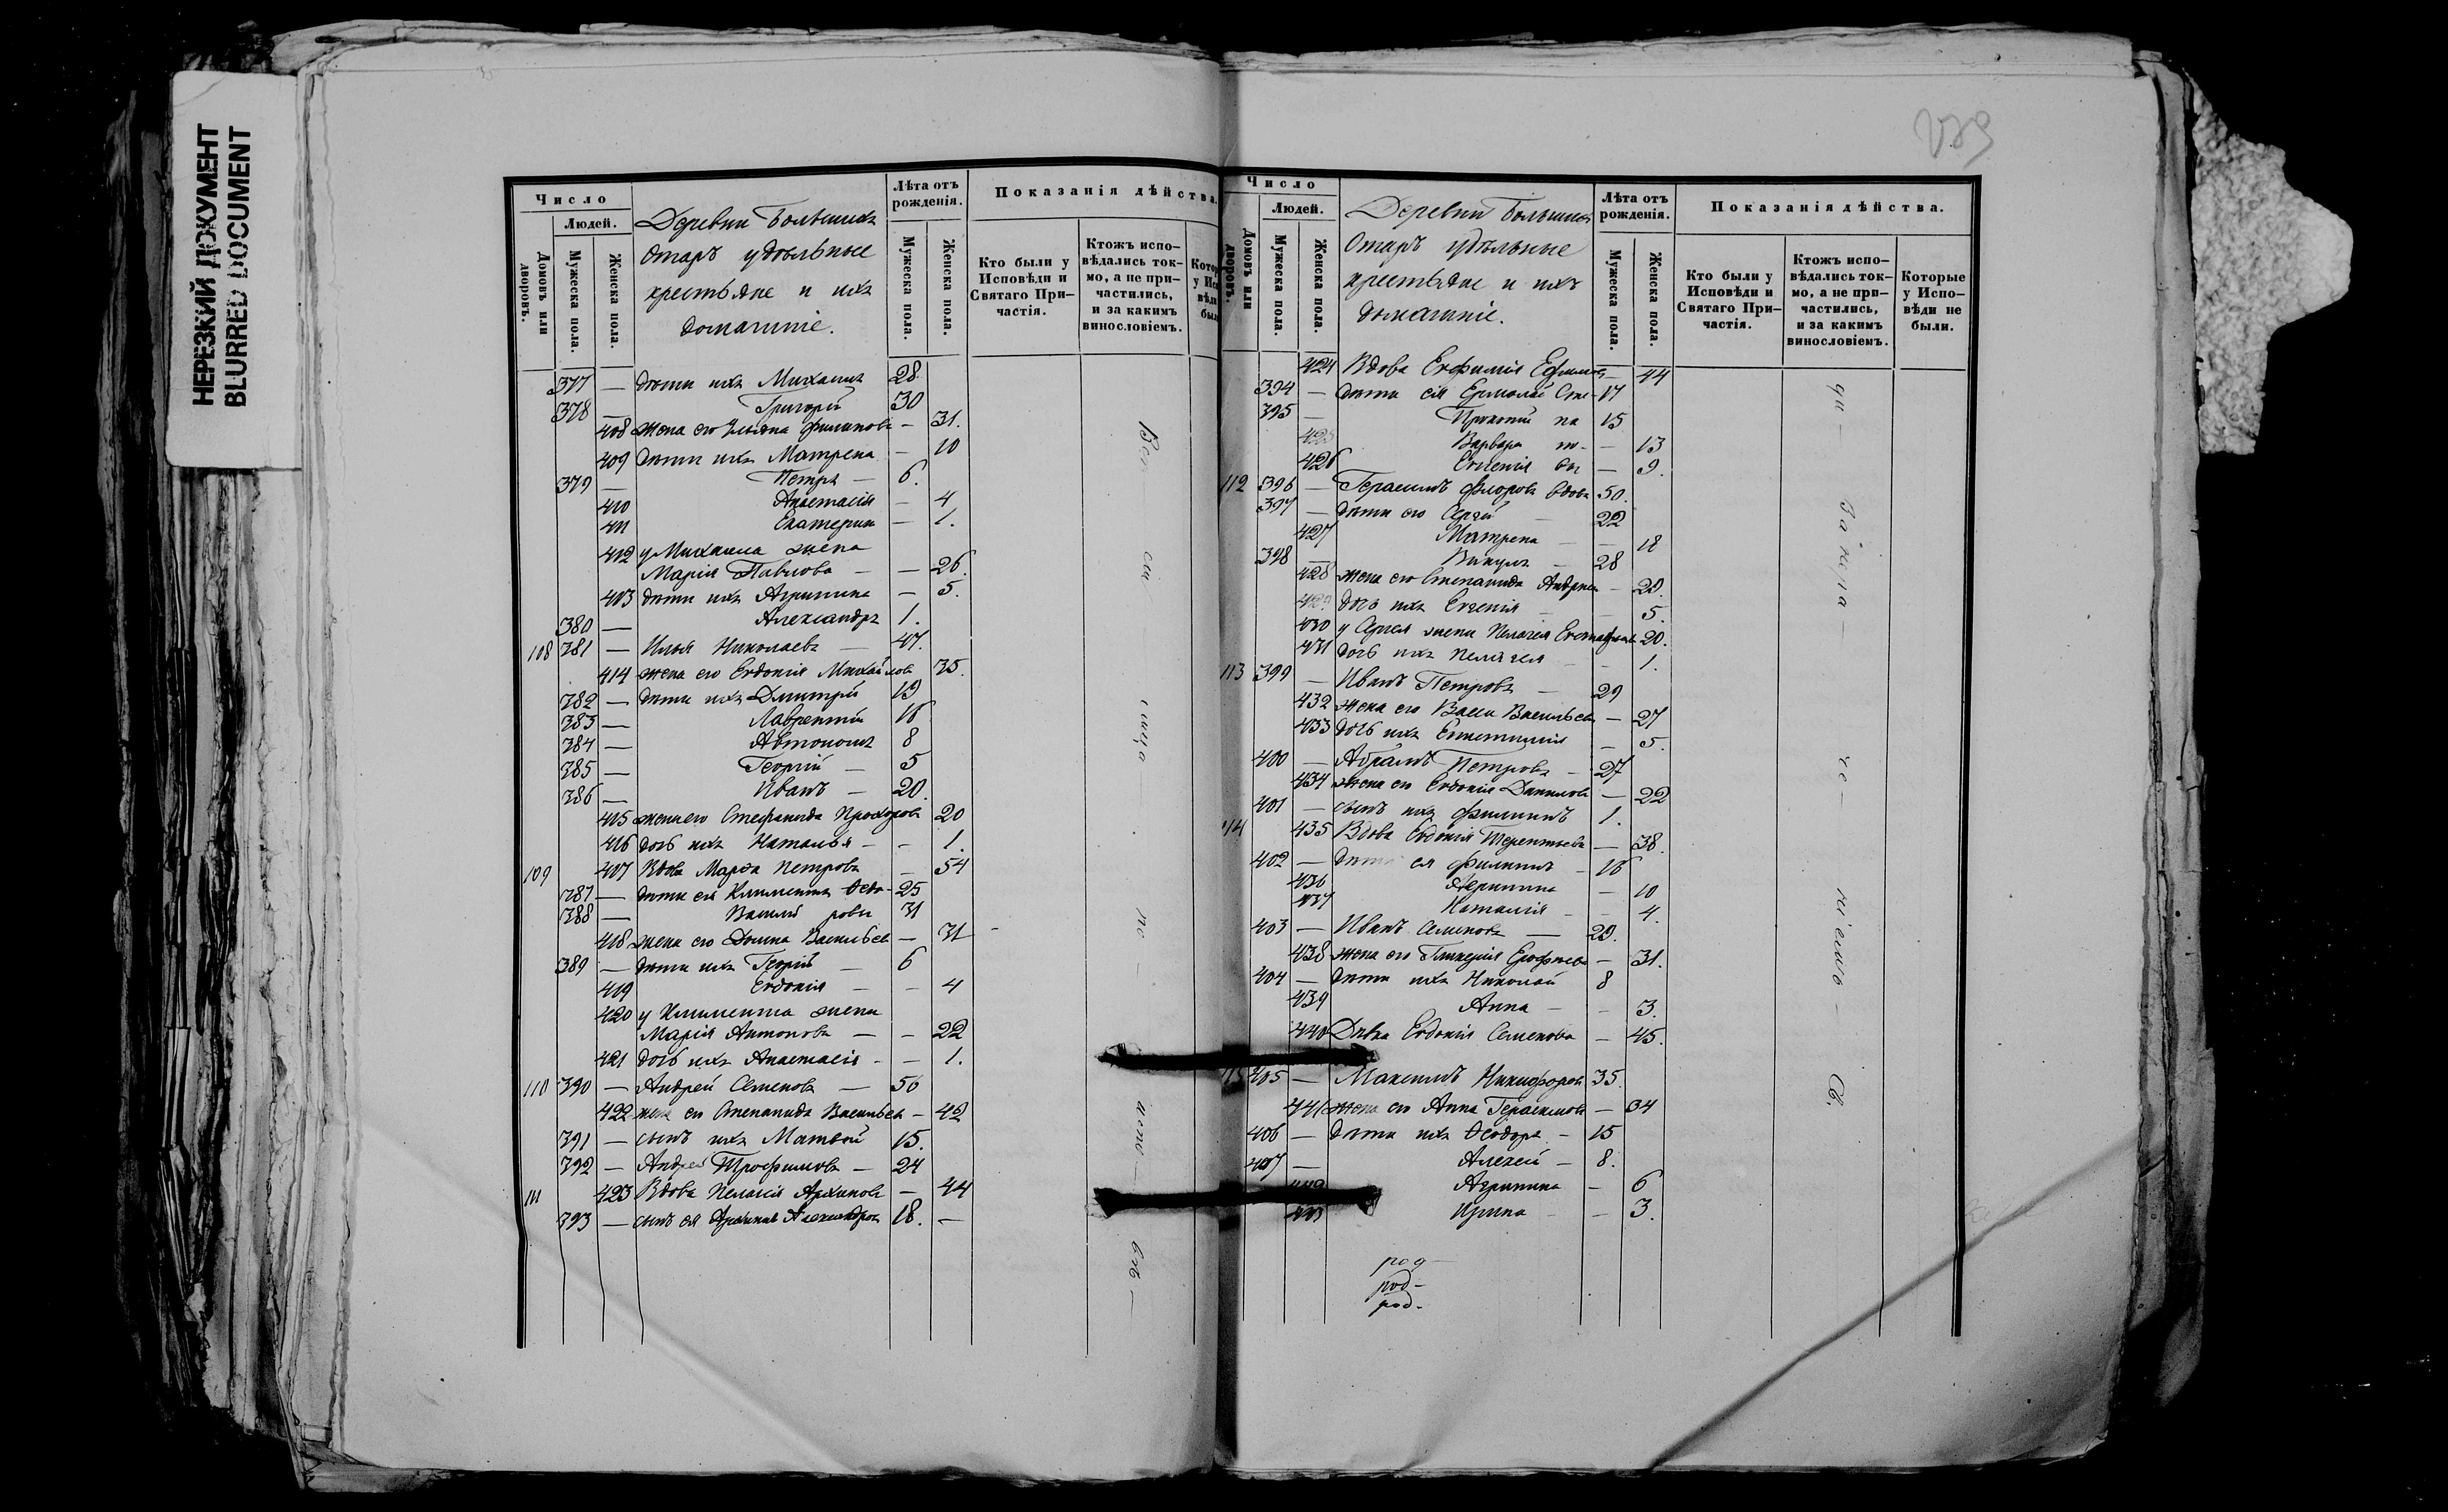 НЕРЕЗКИЙ ДОКУМЕНТ
BLURRED DOCUMENT
Число
Людей.
Домовъ или дворовъ.
Мужеска пола.
Женска пола.
Деревни Большихъ
Отаръ удѣльные
крестьяне и ихъ
домашніе.
Лѣта отъ рожденія.
Мужеска пола.
Женска пола.
Показанія дѣйства.
Кто были у Исповѣди и Святаго При-частія.
Ктожъ испо-вѣдались ток-мо, а не при-частились, и за какимъ винословіемъ.
377 — дѣти ихъ Михаилъ 28.
378 — Григорій 30
408 жена его Ульяна Филипова — 31.
409 дѣти ихъ Матрена — 10
379 — Петръ — 6.
410 Анастасія — 4
411 Екатерина — 1.
412 у Михаила жена
Марія Павлова — — 26.
413 дѣти ихъ Агрипина — 5.
380 — Александръ 1.
108 381 — Илья Николаевъ — 47.
414 жена его Евдокія Михайлова 35.
382 — дѣти ихъ Дмитрій 19
383 — Лаврентій 16
384 — Автономъ 8
385 — Георгій — 5
386 — Иванъ — 20.
415 жена его Стефанида Прохорова 20
416 дочь ихъ Наталья — — 1.
109 407 Вдова Марѳа Петрова — 54
387 — дѣти ея Климентъ Ѳедо- 25
388 — Василій ровы 31
418 жена его Домна Васильева — 31
389 — дѣти ихъ Георгій — 6
419 Евдокія — — 4
420 у Климента жена
Марія Антонова — — 22
421 дочь ихъ Анастасія — — 1.
110 390 — Андрей Семеновъ — 56
422 жена его Степанида Васильева — 42
391 — сынъ ихъ Матвей 15.
392 — Андрей Трофимовъ — 24
111 423 Вдова Пелагія Архипова — 44
393 — сынъ ея Архипъ Александровъ 18. —
Число
Людей.
Домовъ или дворовъ.
Мужеска пола.
Женска пола.
Деревни Большихъ
Отаръ удѣльные
крестьяне и ихъ
домашніе.
Лѣта отъ рожденія.
Мужеска пола.
Женска пола.
Показанія дѣйства.
Кто были у Исповѣди и Святаго При-частія.
Ктожъ испо-вѣдались ток-мо, а не при-частились, и за какимъ винословіемъ.
Которые у Испо-вѣди не были.
424 Вдова Евфимія Ефимова — 44
394 — дѣти ея Ермолай Сте- 17
395 — Прокопій па 15
425 Варвара но- — 13
426 Евгенія вы — 9.
112 396 — Герасимъ Флоровъ вдовъ 50.
397 — дѣти его Сергей — 22
427 Матрена — — 18
398 — Викулъ — 28
428 жена его Степанида Андреева — 29.
429 дочь ихъ Евгенія — 5.
430 у Сергея жена Пелагея Евстафьева 20.
431 дочь ихъ Пелагея — — 1.
113 399 — Иванъ Петровъ — 29
432 жена его Васса Васильева — 27
433 дочь ихъ — 5.
400 — Абрамъ Петровъ — 27
434 жена его Евдокія Данилова — 22
401 — сынъ ихъ Филиппъ 1.
114 435 Вдова Евдокія Терентьева — 38.
402 — дѣти ея Филиппъ — 16
436 Агрипина — 10
437 Наталія — — 4.
403 — Иванъ Семеновъ — 29.
438 жена его Гликерія Ерофеева — 31.
404 — дѣти ихъ Николай 8
439 Анна — — 3.
440 Дѣвка Евдокія Семенова — 45.
115 405 — Максимъ Никифоровъ 35.
441 жена его Анна Герасимова — 34
406 — дѣти ихъ Ѳеодоръ — 15
407 — Алексей — 8.
442 Агрипина — 6
443 Ирина — — 3.
род-
род-
род-